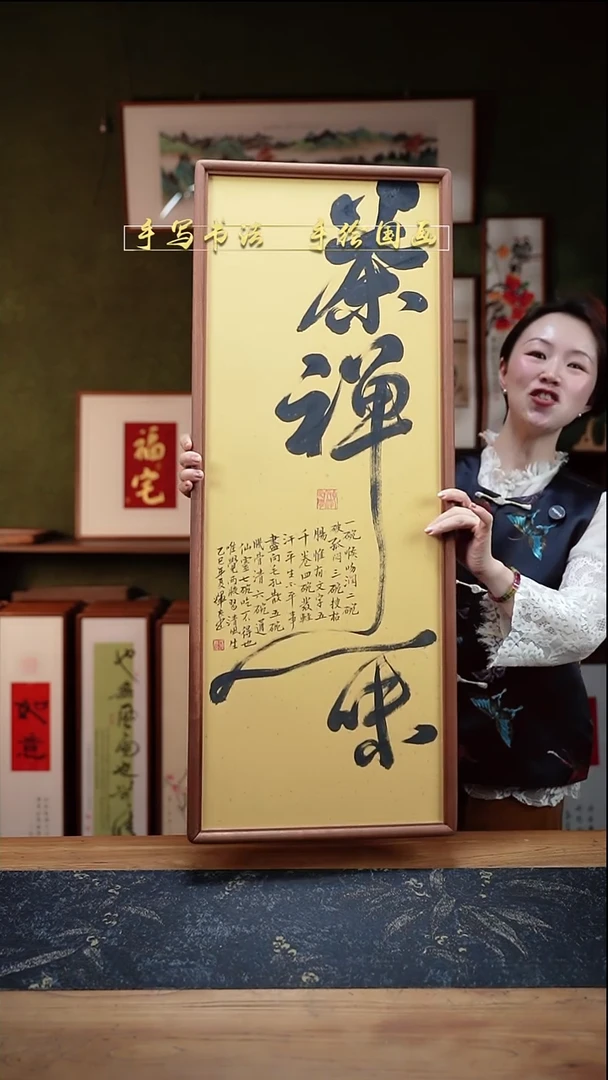 手写书法 手绘国画
茶
禅
一
味
一碗喉吻润二碗
破孤闷三碗搜枯
肠惟有文字五
千卷四碗發軽
汗平生不平事
盡向毛孔散五碗
肌骨清六碗通
仙靈七碗吃不得也
唯覺两腋習習清風生
乙巳年夏
福
宅
如意
也無風雨也無